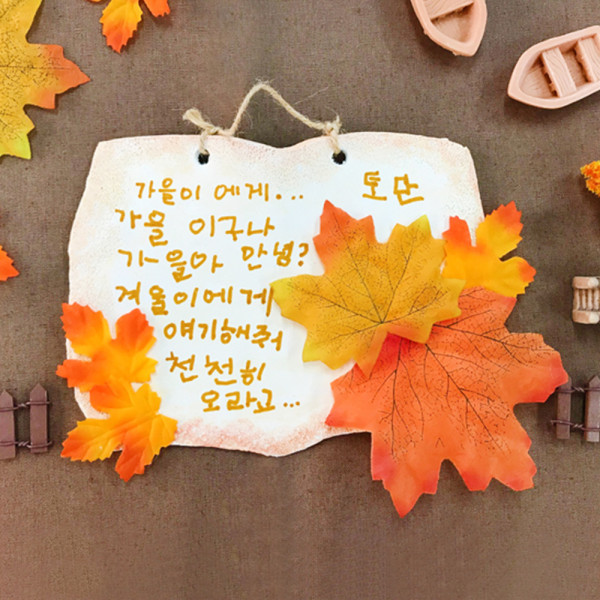 가을이 에게... 토단
가을 이구나
가을아 안녕?
겨울이에게
얘기해줘
천천히
오라고...